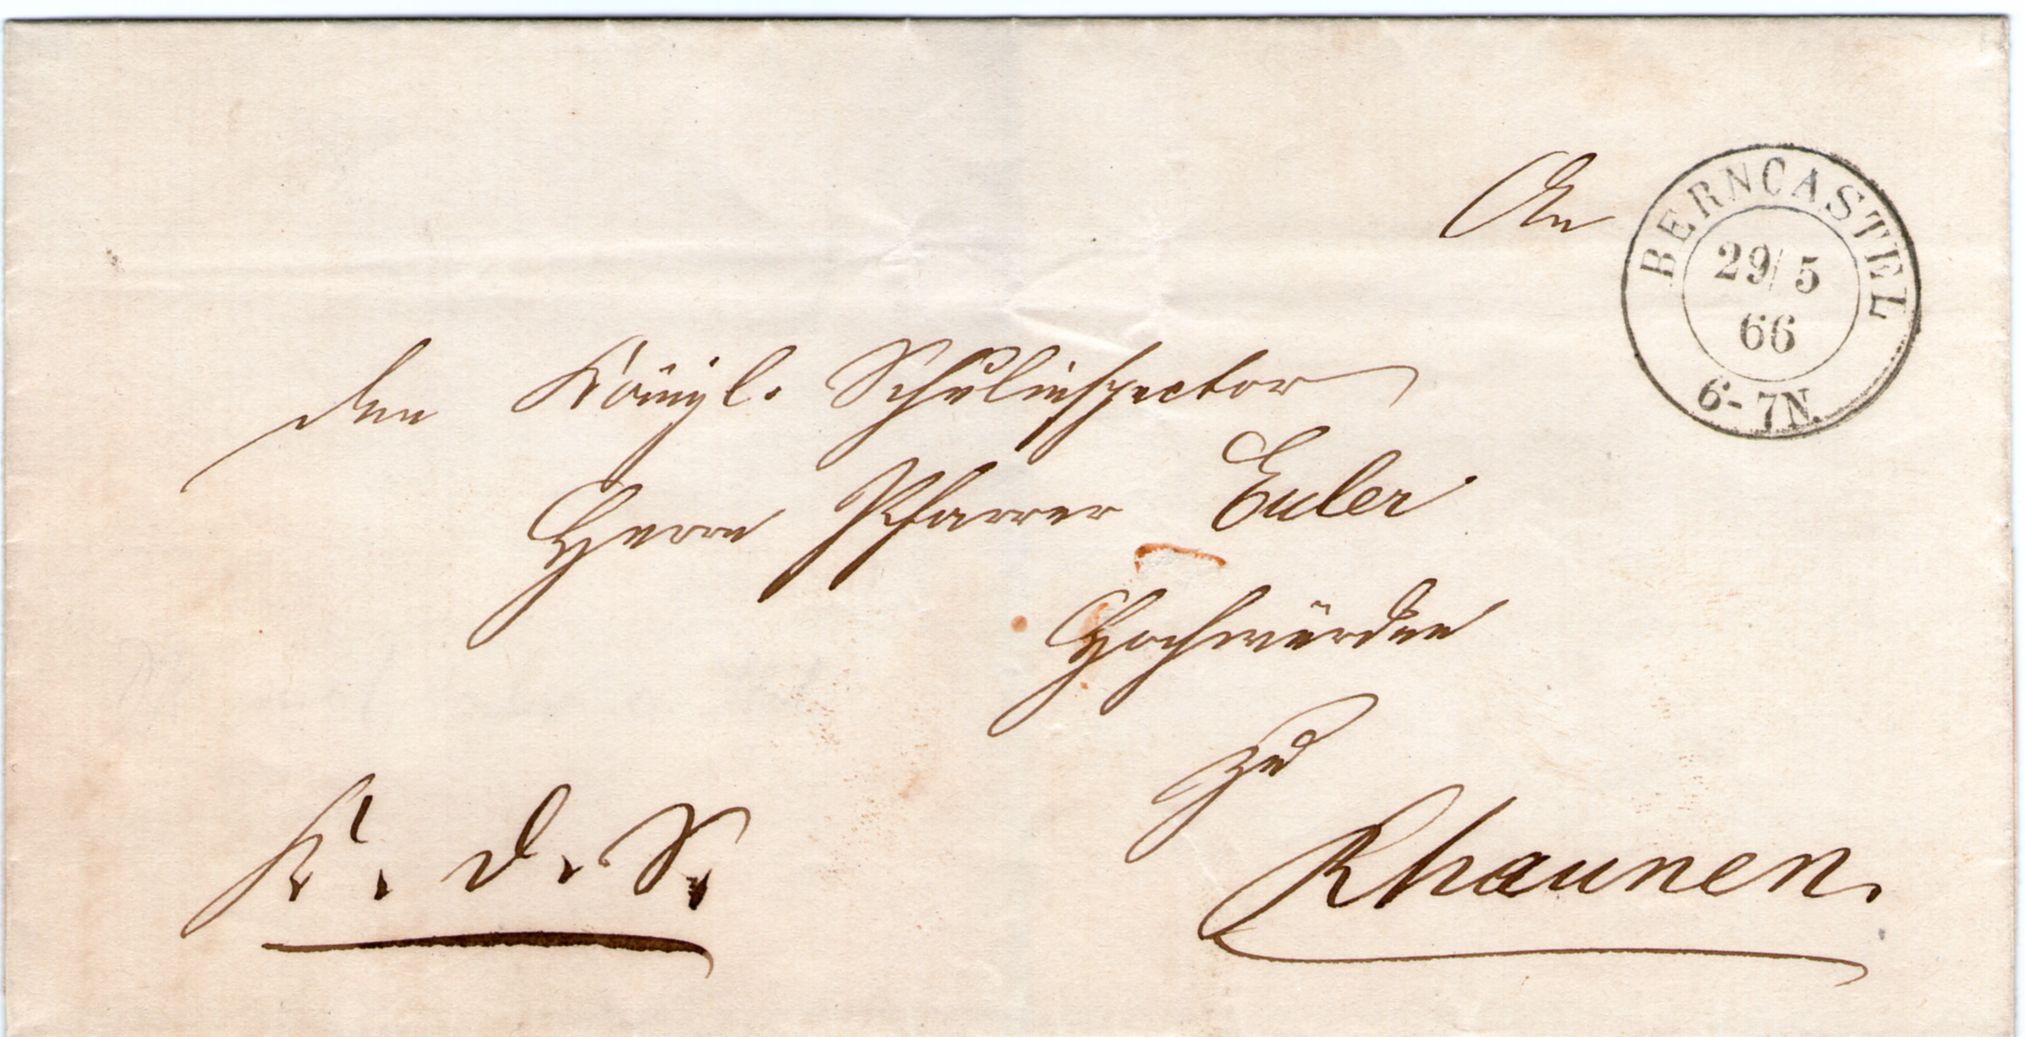 An
BERNCASTEL
29/5
66
6-7N.
den Königl. Schulinspector
Herrn Pfarrer Euler
Hochwürden
zu
K. d. S.
Rhaunen.